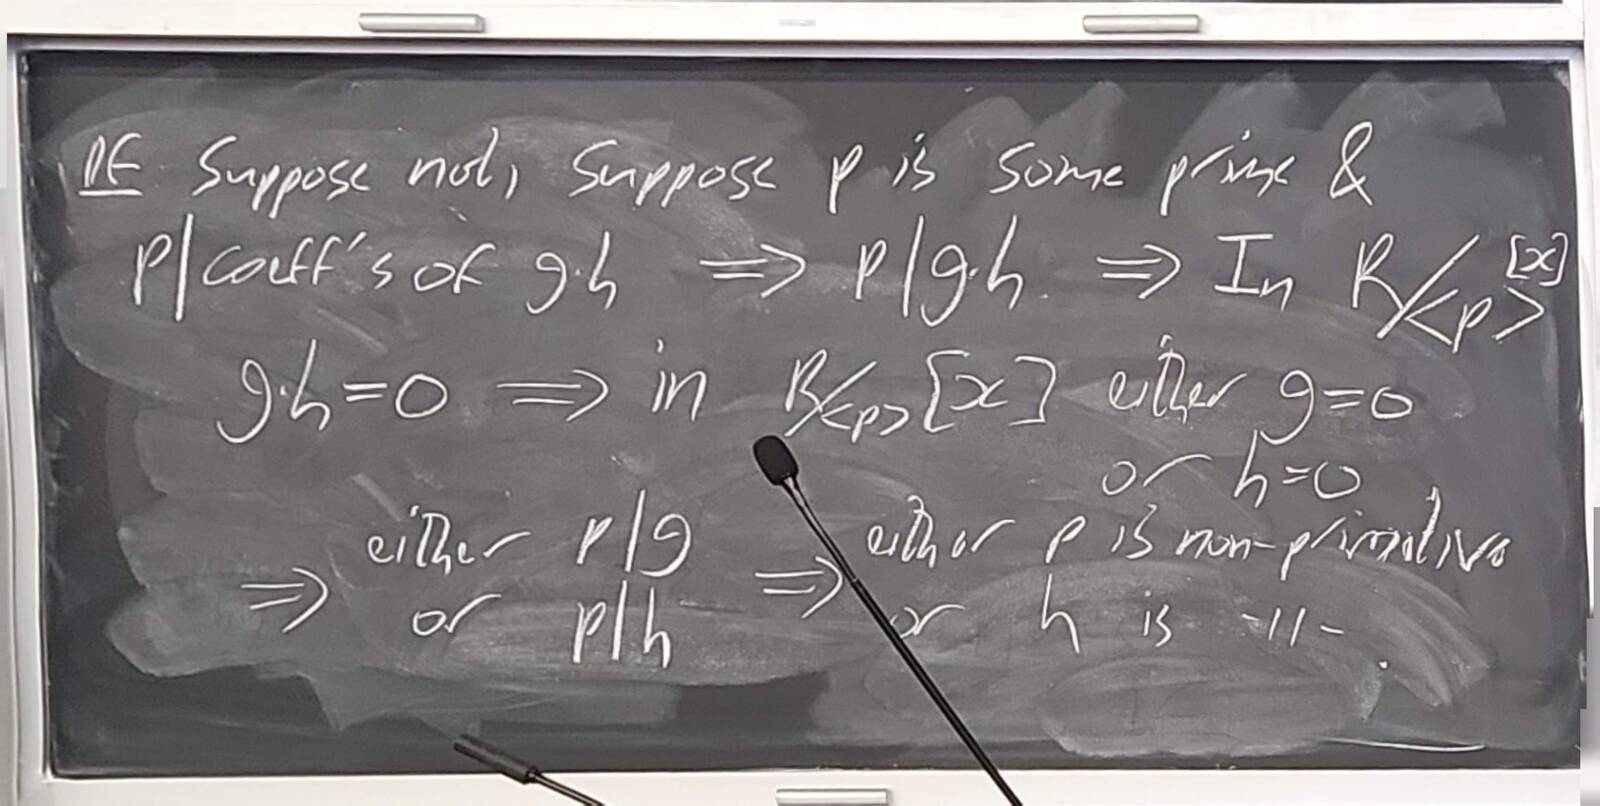 Pf Suppose not, suppose p is some prime &
p|coeff's of g·h ⟹ p|g·h. ⟹ In R/<p>[x]
g·h=0 ⟹ in R/<p>[x] either g=0
or h=0
⟹ either p|g ⟹ either p is non-primitive
or p|h or h is -11-.